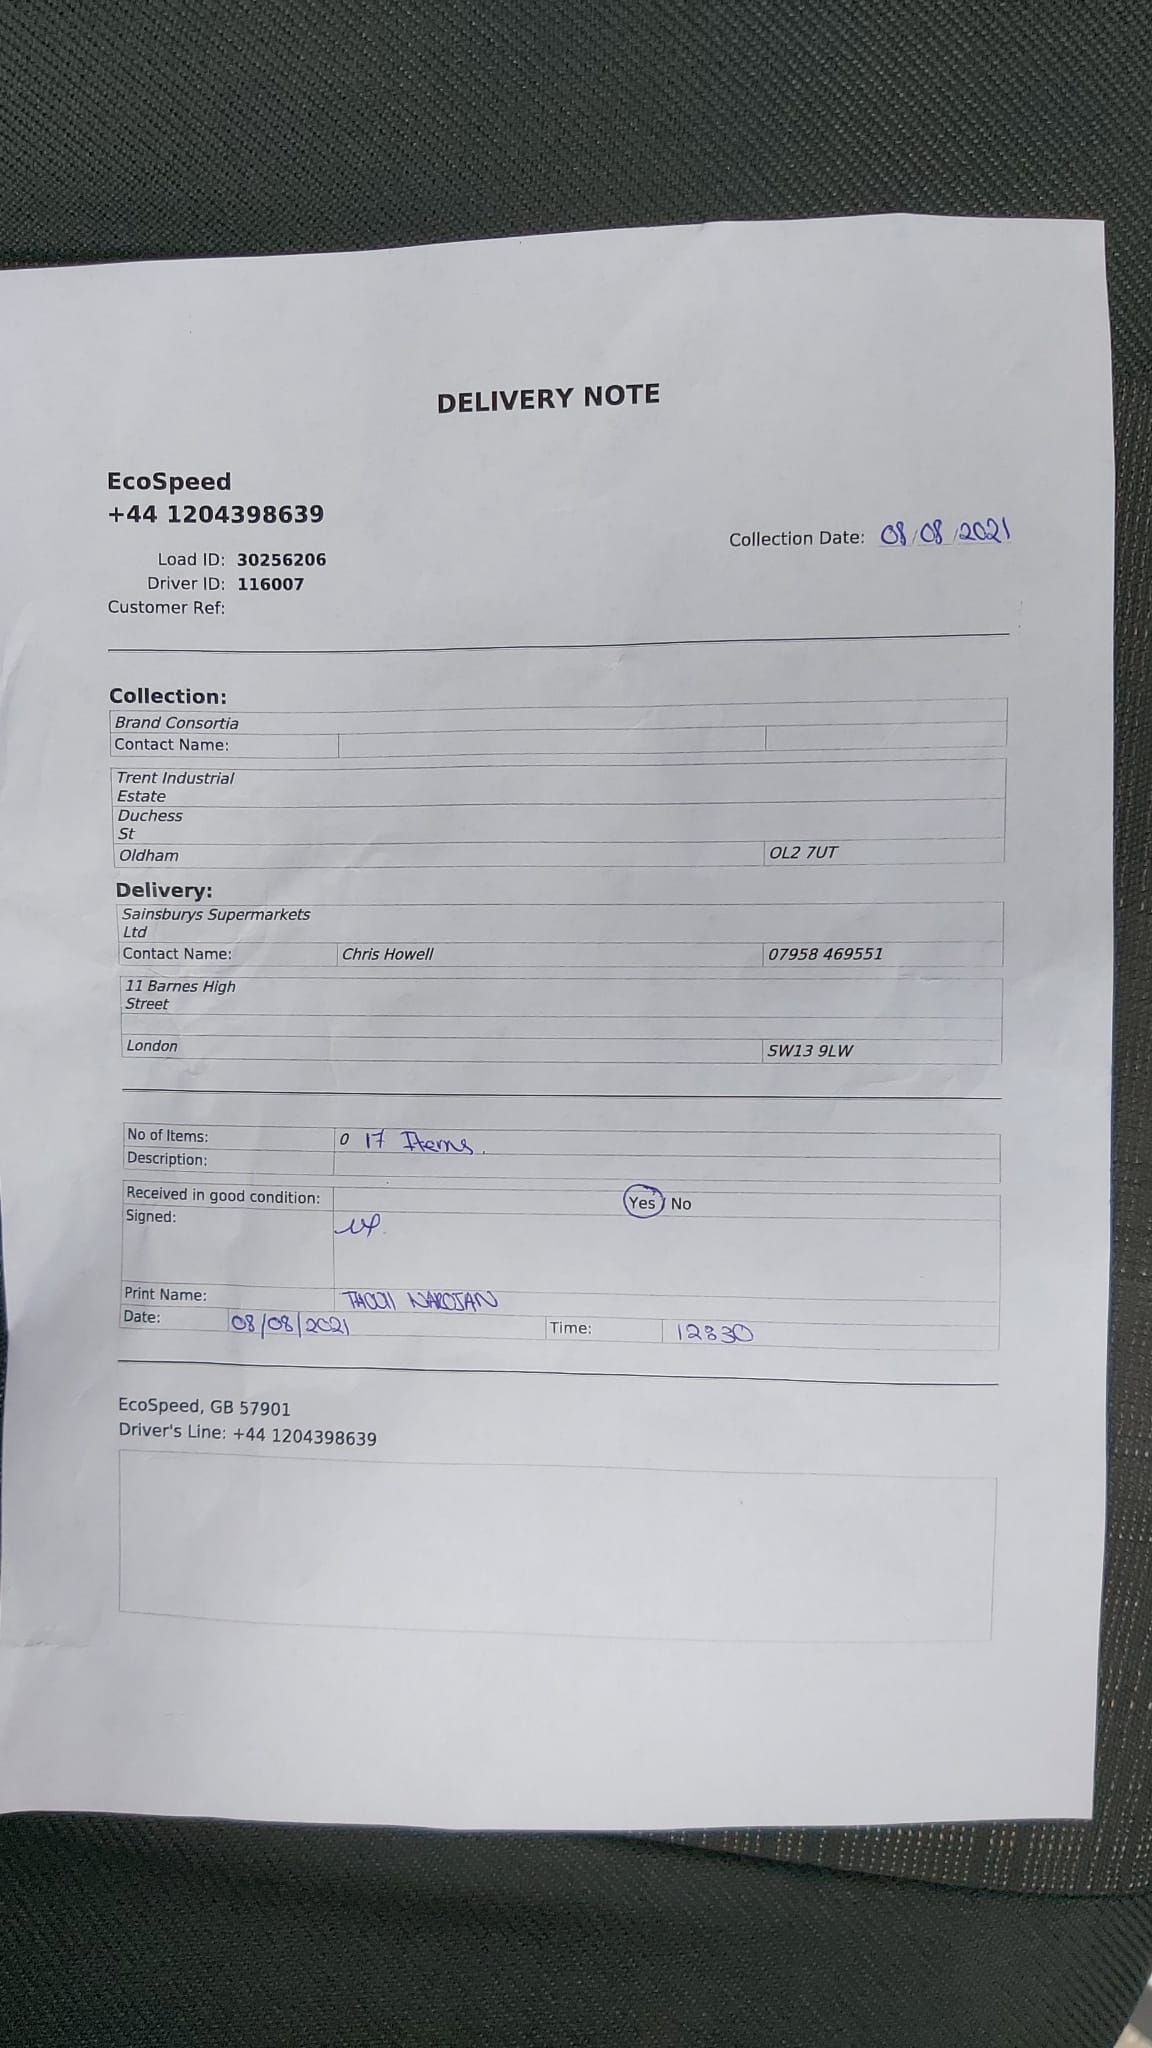 DELIVERY NOTE
EcoSpeed
+44 1204398639
Collection Date: 08/08/2021
Load ID: 30256206
Driver ID: 116007
Customer Ref:
Collection:
Brand Consortia
Contact Name:
Trent Industrial
Estate
Duchess
St
Oldham OL2 7UT
Delivery:
Sainsburys Supermarkets
Ltd
Contact Name: Chris Howell 07958 469551
11 Barnes High
Street
London SW13 9LW
No of Items: 0 17 Items.
Description:
Received in good condition: Yes / No
Signed:
Print Name:
Date: 08/08/2021 Time: 12:30
EcoSpeed, GB 57901
Driver's Line: +44 1204398639